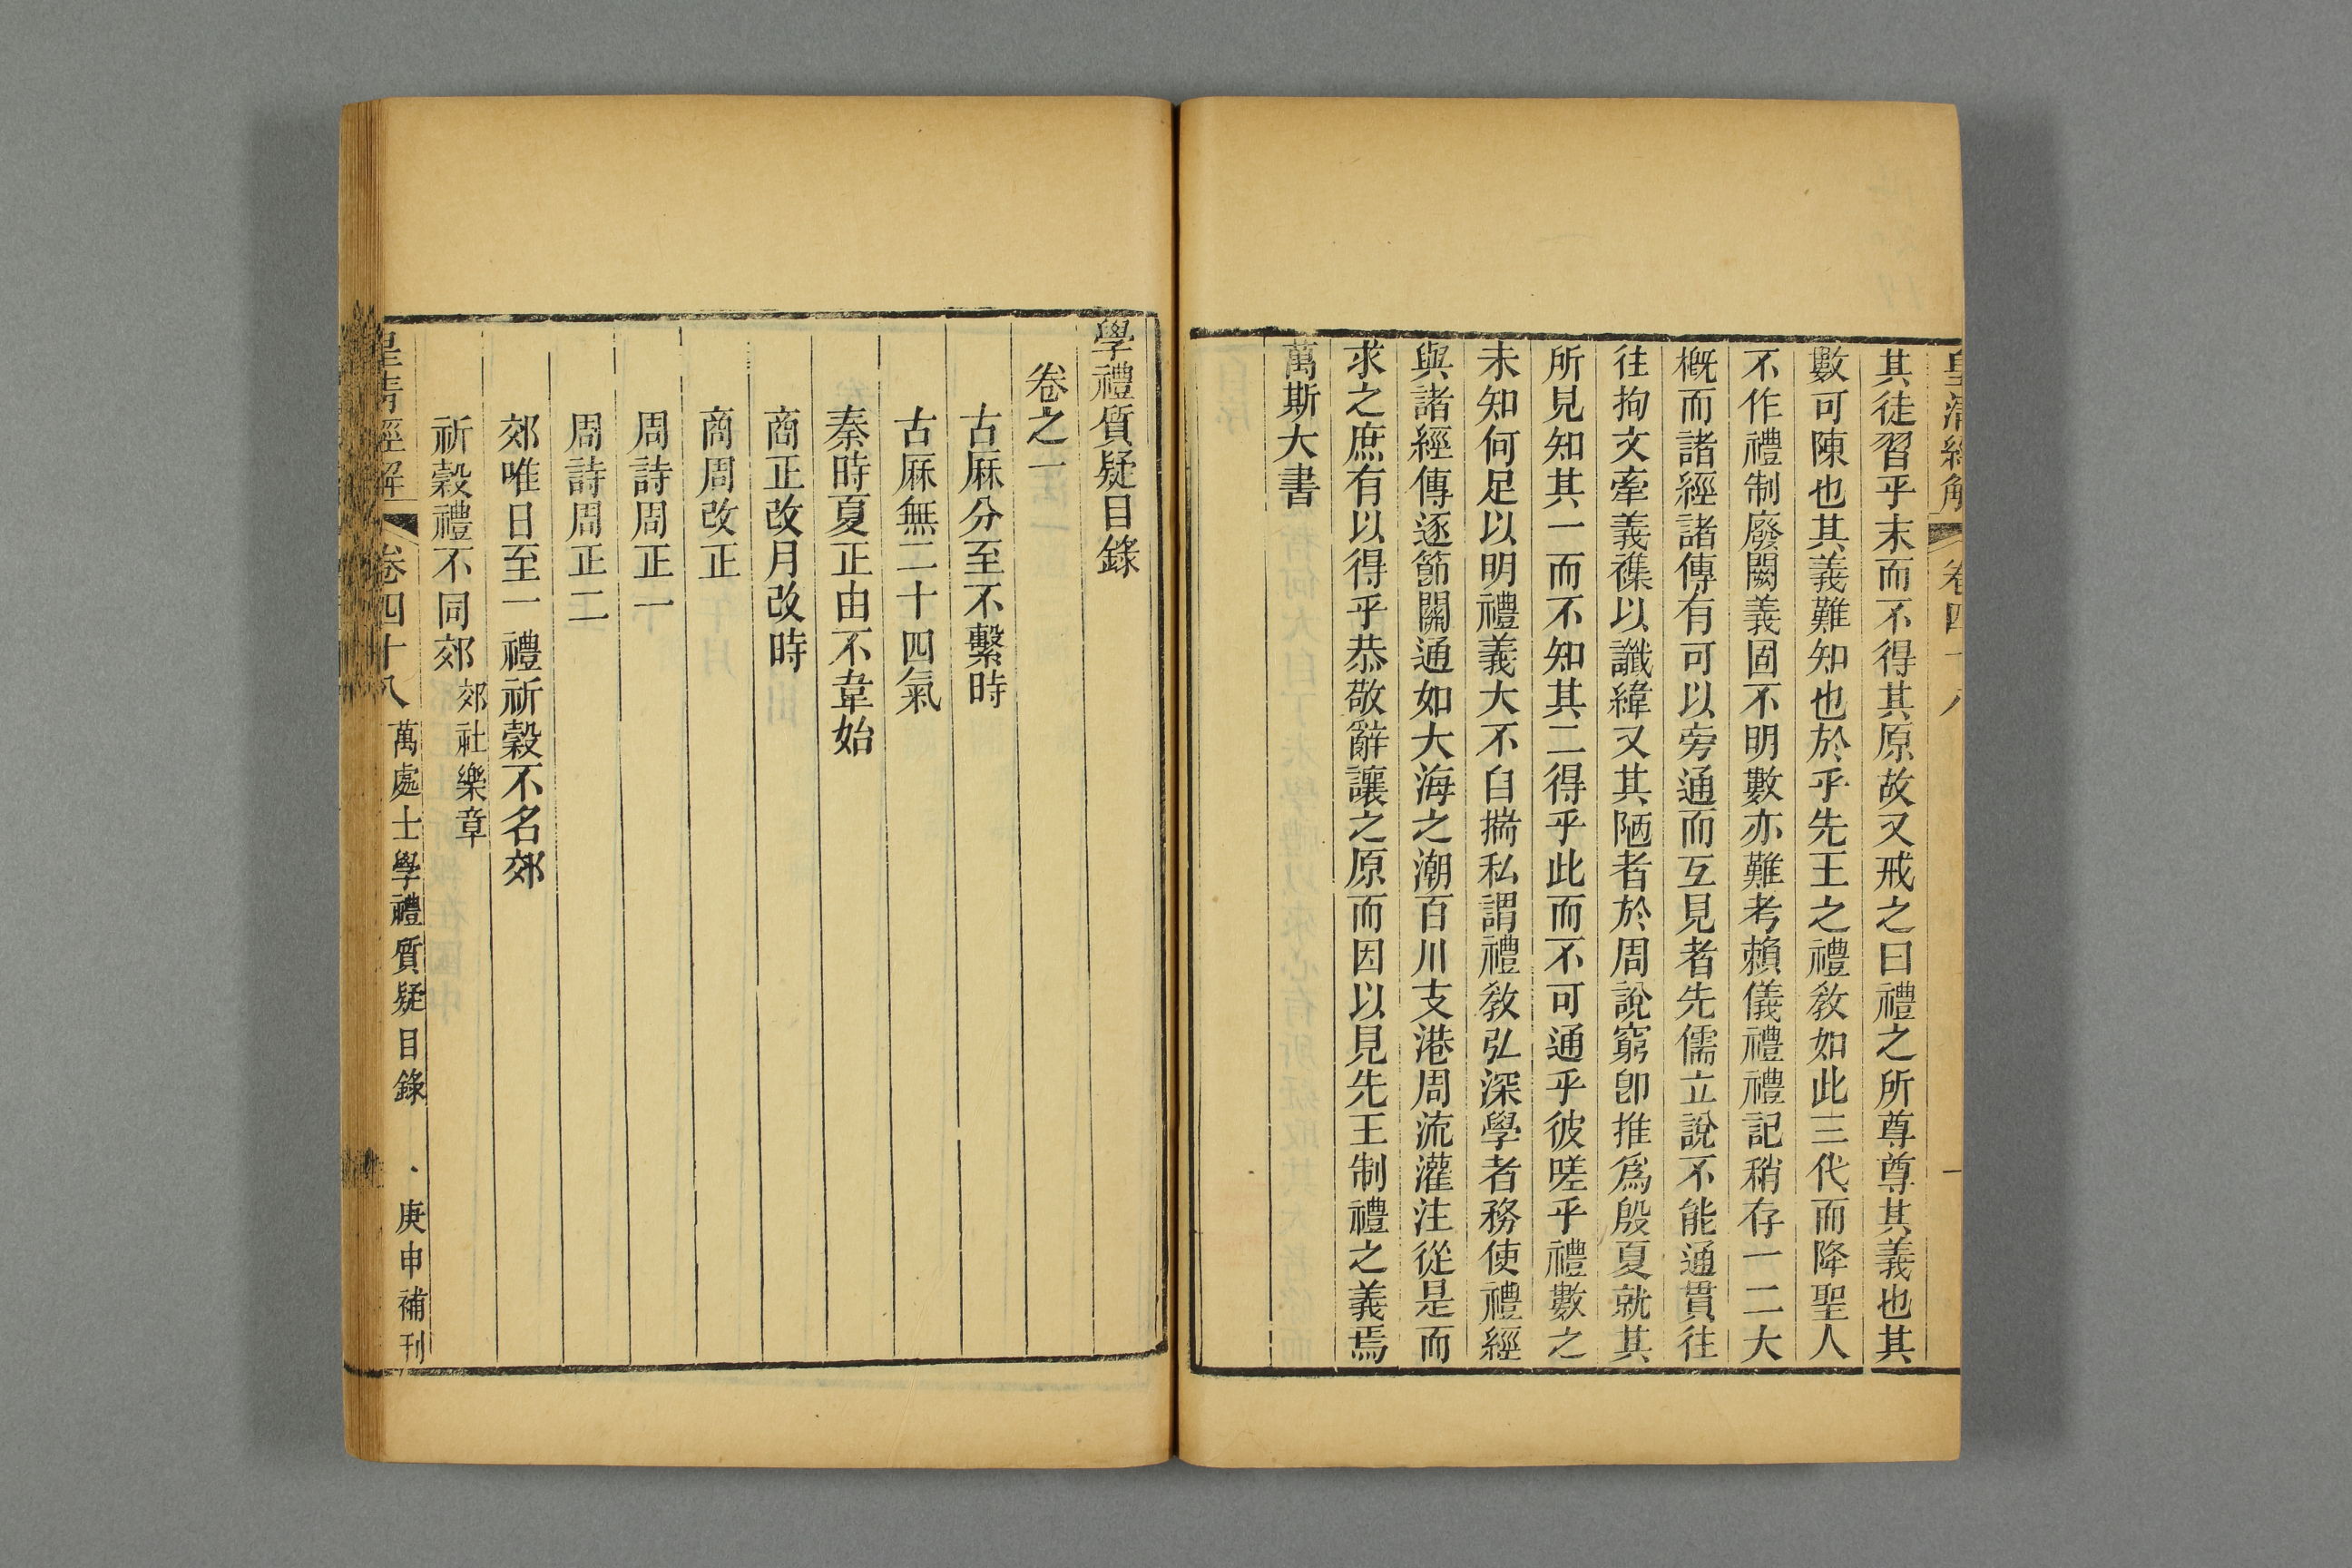 其徒習乎末而不得其原故又戒之曰禮之所尊尊其義也其
數可陳也其義難知也於乎先王之禮敎如此三代而降聖人
不作禮制廢闕義固不明數亦難考賴儀禮禮記稍存一二大
槪而諸經諸傳有可以旁通而互見者先儒立說不能通貫往
往拘文牽義襍以讖緯又其陋者於周說窮卽推爲殷夏就其
所見知其一而不知其二得乎此而不可通乎彼嗟乎禮數之
未知何足以明禮義大不自揣私謂禮敎弘深學者務使禮經
與諸經傳逐節關通如大海之潮百川支港周流灌注從是而
求之庶有以得乎恭敬辭讓之原而因以見先王制禮之義焉
萬斯大書
皇淸經解 卷四十八 一
學禮質疑目錄
卷之一
古厤分至不繫時
古厤無二十四氣
秦時夏正由不韋始
商正改月改時
商周改正
周詩周正一
周詩周正二
郊唯日至一禮祈穀不名郊
祈穀禮不同郊 郊社樂章
皇淸經解 卷四十八 萬處士學禮質疑目錄 庚申補刊